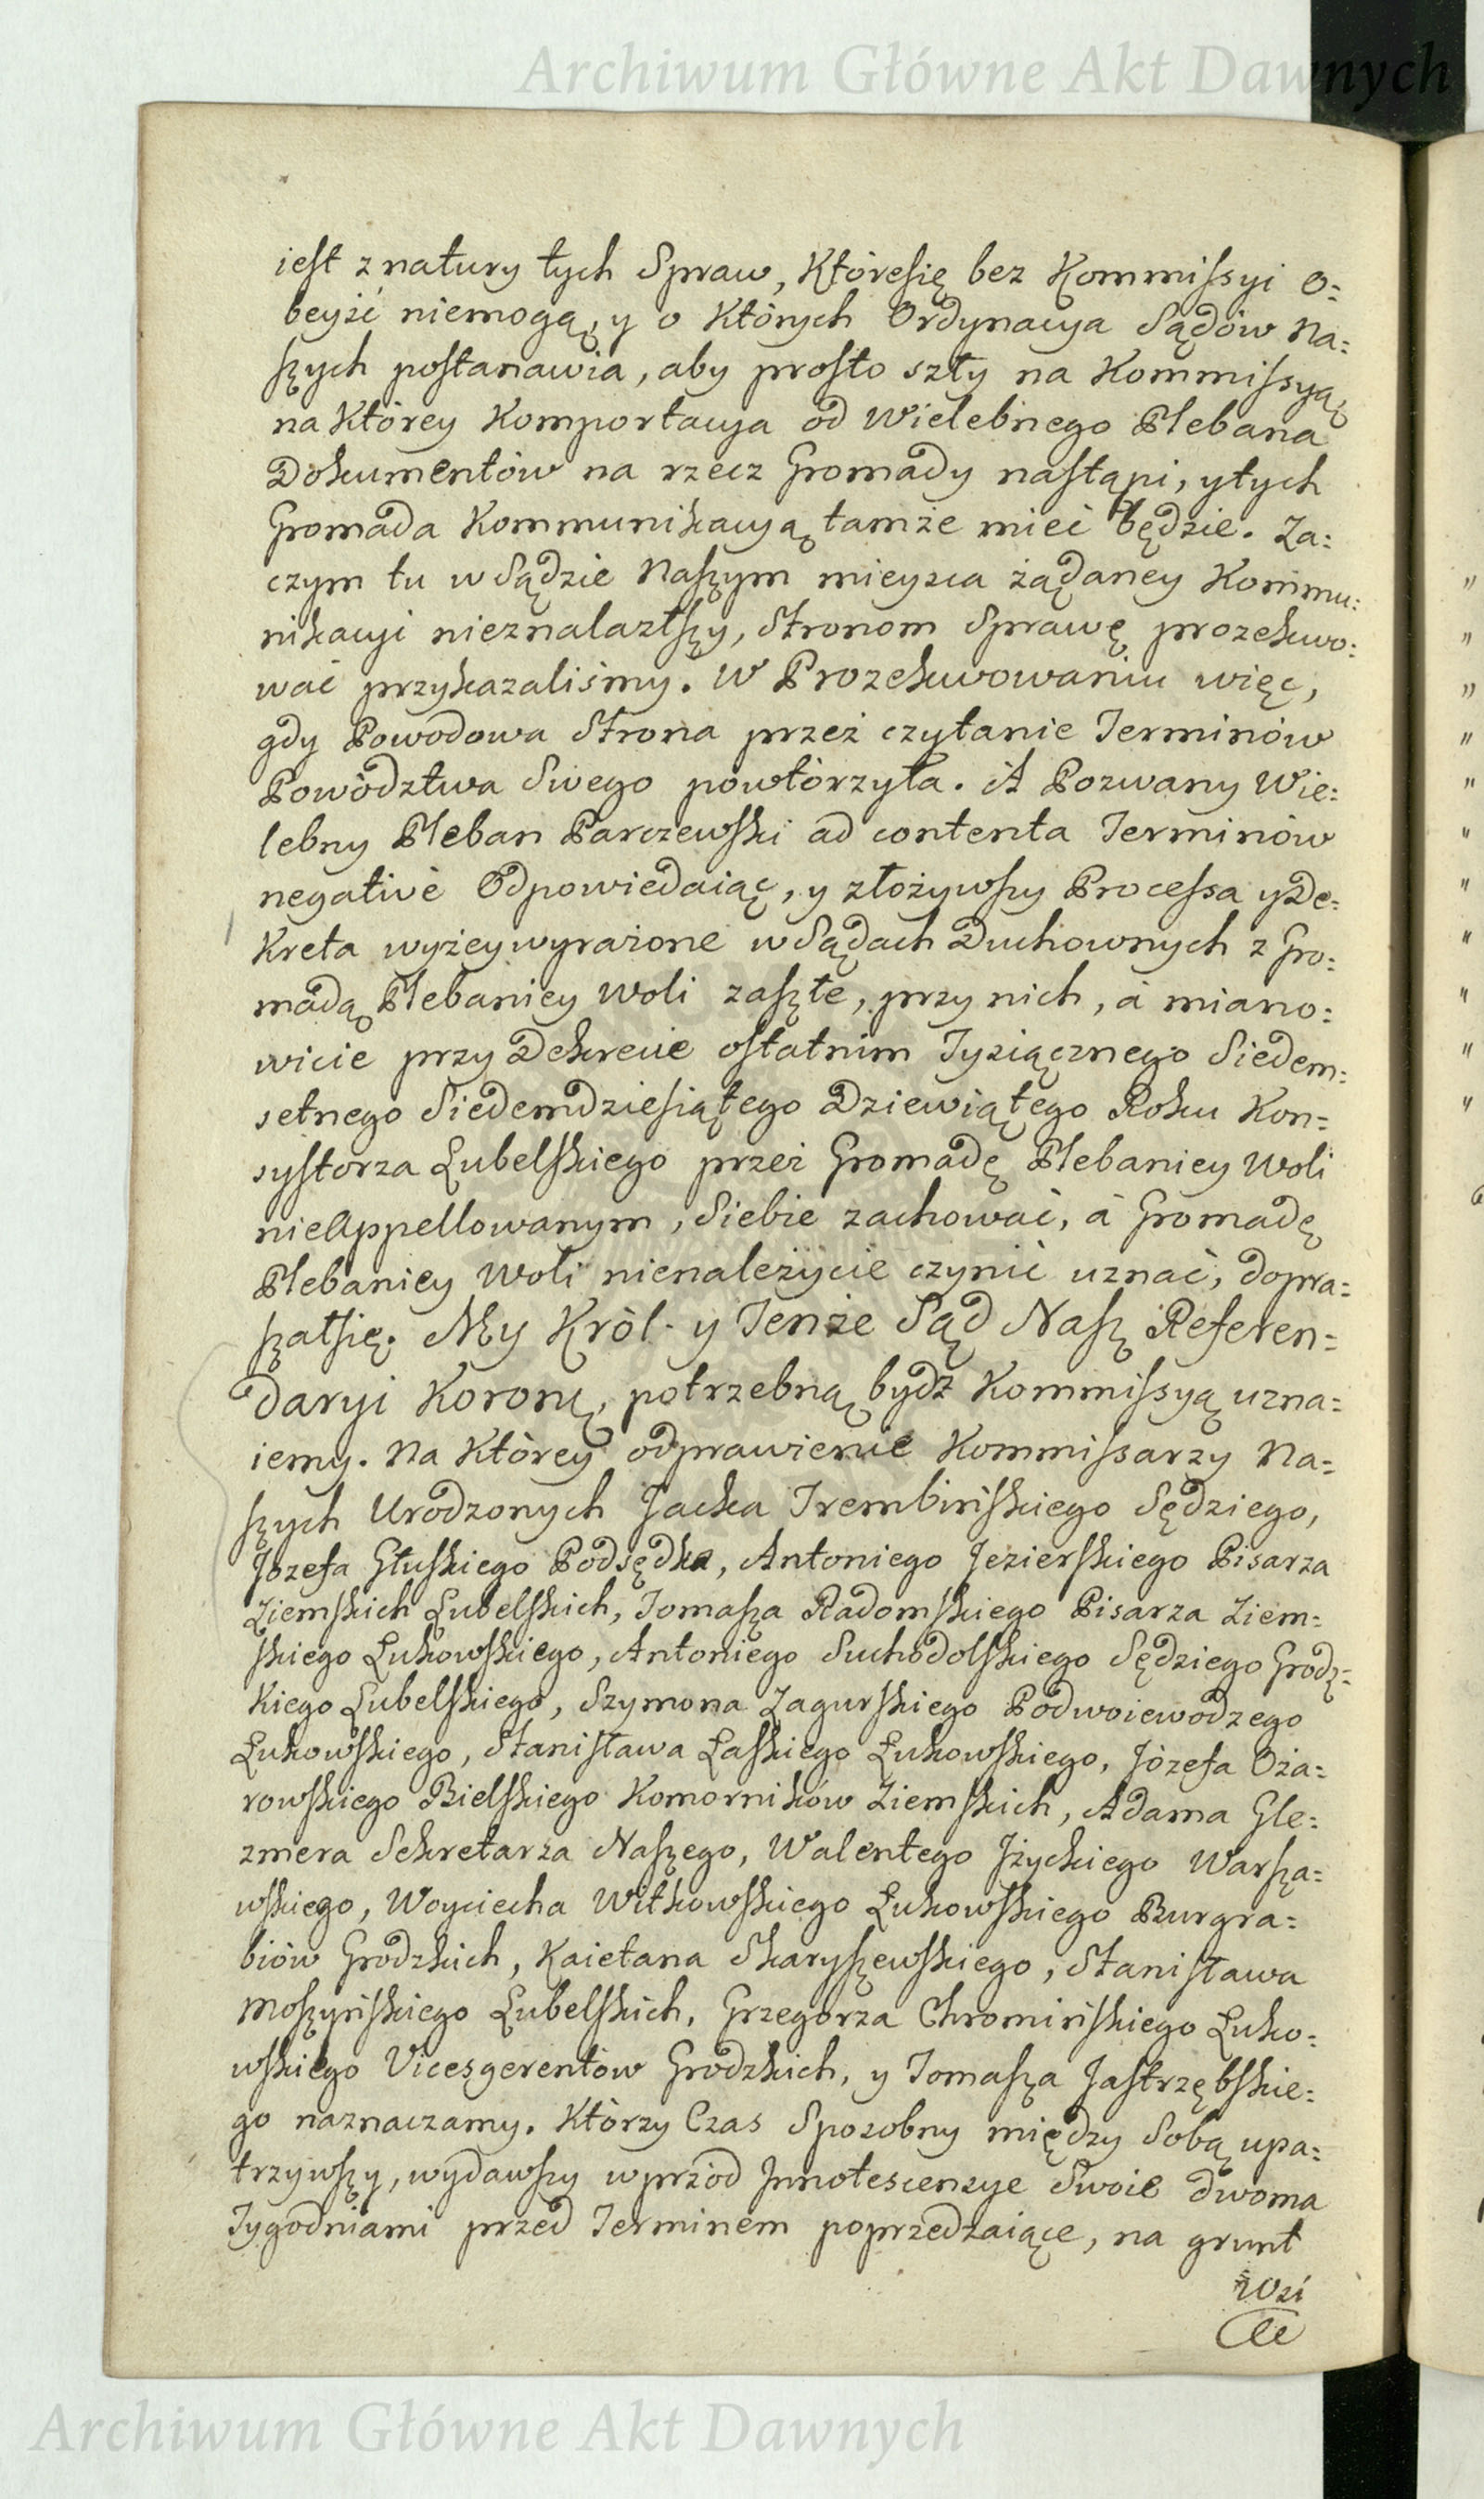 Archiwum Główne Akt Dawnych
iest z natury tych Spraw, Któresię bez Kommissyi o=
beyżć niemogą, y o Których Ordynacya Sądów Na=
szych postanawia, aby prosto szły na Kommissyą,
na Którey Komportacya od Wielebnego Plebana
Dokumentów na rzecz Gromady nastąpi, y tych
Gromada Kommunikacyą tamże mieć będzie. Za=
czym tu w Sądzie Naszym mieysca żądaney Kommu=
nikacyi nieznalazłszy, Stronom Sprawę prozekwo=
wać przykazaliśmy. W Prozekwowaniu więc,
gdy Powodowa Strona przez czytanie Terminów
Powództwa Swego powtórzyła. A Pozwany Wie=
lebny Pleban Parczewski ad contenta Terminów
negativè Odpowiedaiąc, y złożywszy Processa y De=
Kreta wyżey wyrażone w Sądach Duchownych z Gro=
madą Plebaniey Woli zaszłe, przy nich, à miano=
wicie przy Dekrecie ostatnim Tysiącznego Siedem=
setnego Siedemdziesiątego Dziewiątego Roku Kon=
systorza Lubelskiego przez Gromadę Plebaniey Woli
nieAppellowanym, Siebie zachować, à Gromadę
Plebaniey Woli nienależycie czynić uznać, dopra=
szał się. My Król y Tenże Sąd Nasz Referen=
daryi Koronę, potrzebną bydź Kommissyą uzna=
iemy. Na Którey odprawienie Kommissarzy Na=
szych Urodzonych Jacka Trembińskiego Sędziego,
Józefa Głuskiego Podsędka, Antoniego Jezierskiego Pisarza
Ziemskich Lubelskich, Tomasza Radomskiego Pisarza Ziem=
skiego Łukowskiego, Antoniego Suchodolskiego Sędziego Grodz=
Kiego Lubelskiego, Szymona Zagurskiego Podwoiewodzego
Łukowskiego, Stanisława Laskiego Łukowskiego, Józefa Oża=
rowskiego Bielskiego Komorników Ziemskich, Adama Gle=
zmera Sekretarza Naszego, Walentego Jżyckiego Warsza=
wskiego, Woyciecha Witkowskiego Łukowskiego Burgra=
biów Grodzkich, Kaietana Skaryszewskiego, Stanisława
Moszyńskiego Lubelskich, Grzegorza Chromińskiego Łuko=
wskiego Vicesgerentów Grodzkich, y Tomasza Jastrzębskie=
go naznaczamy. Którzy Czas Sposobny między Sobą upa=
trzywszy, wydawszy wprzód Jnnotescencye Swoie dwoma
Tygodniami przed Terminem poprzedzaiące, na grunt
Wsi
Archiwum Główne Akt Dawnych